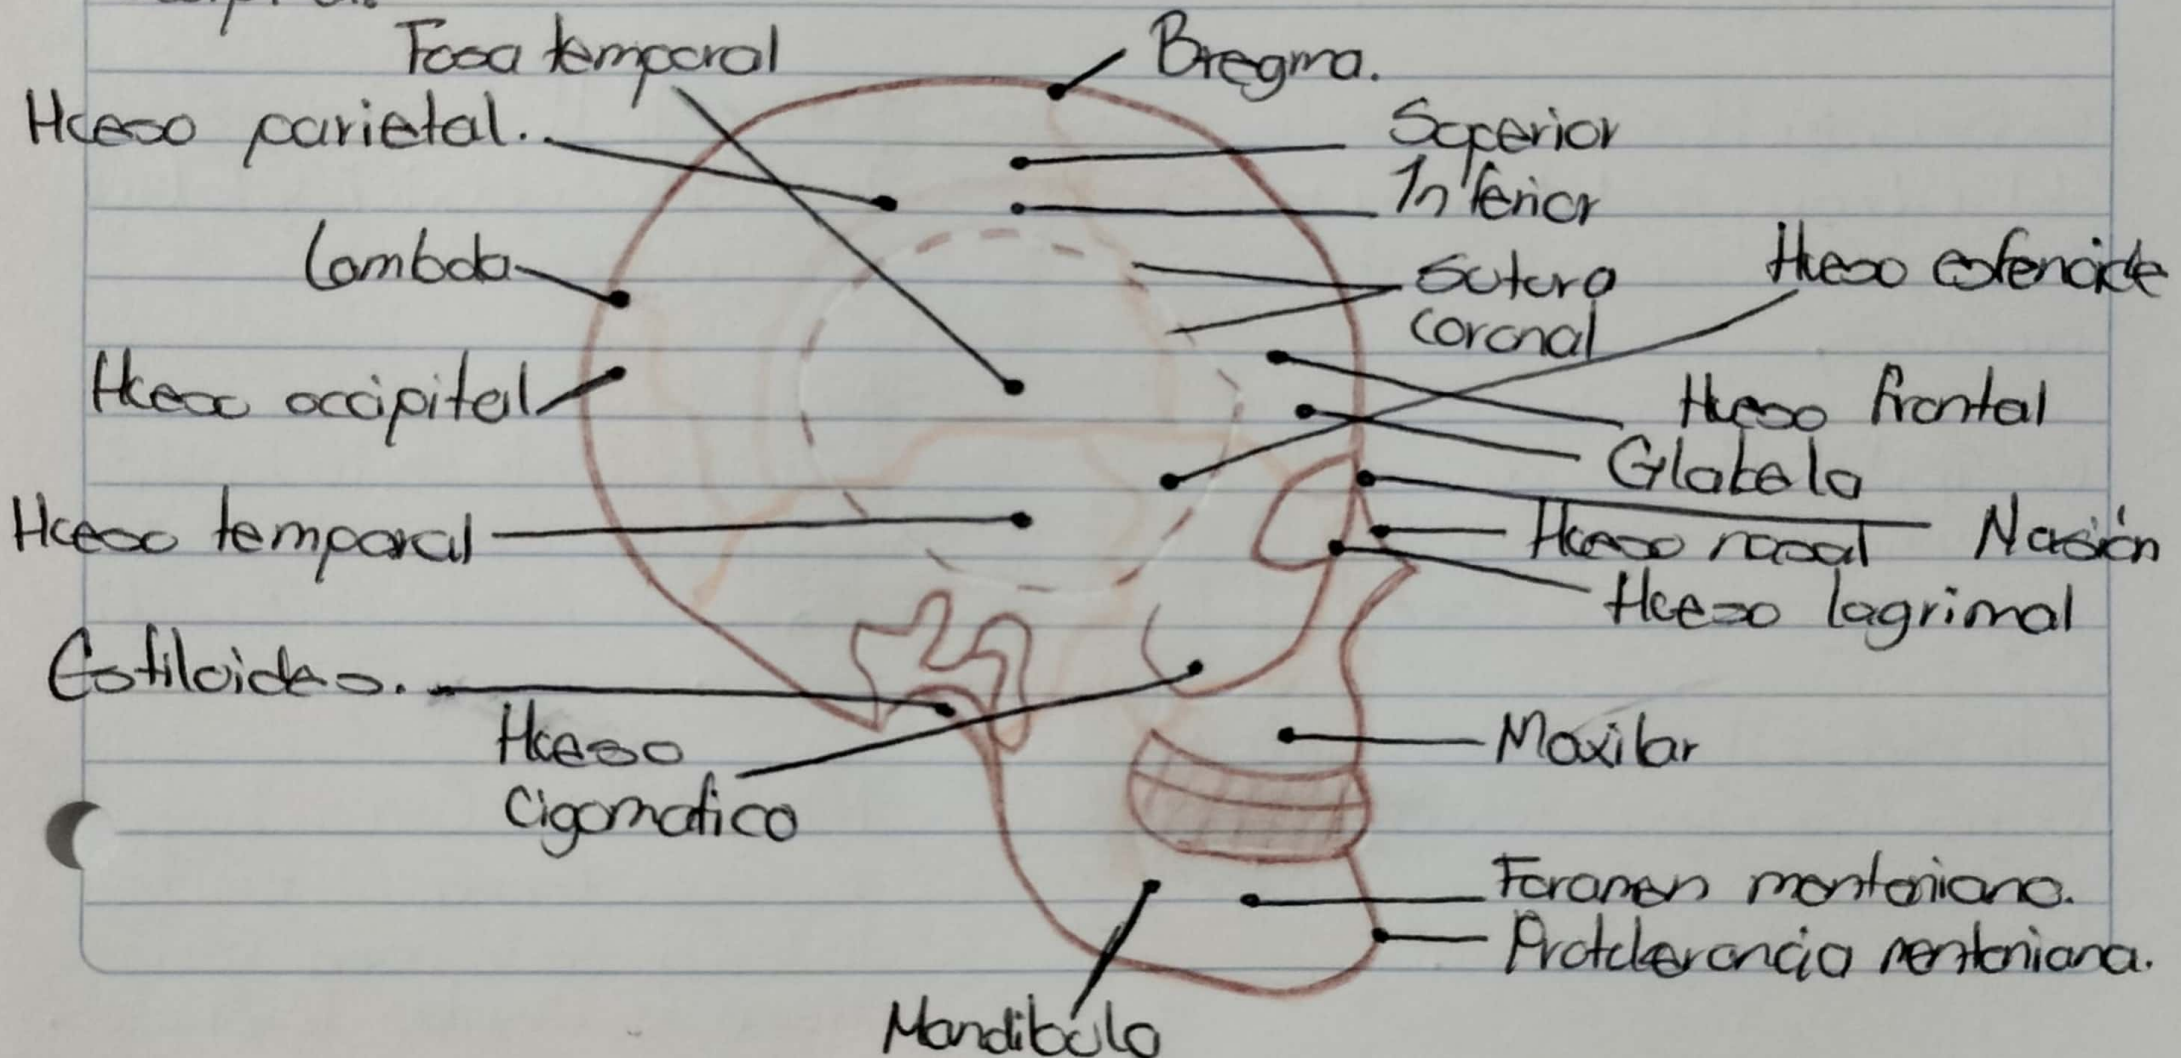 Fosa temporal
Bregma.
Hueso parietal.
Superior
Inferior
Lambda
Sutura
coronal
Hueso esfenoide
Hueso occipital
Hueso frontal
Glabela
Hueso temporal
Hueso nasal
Nasión
Hueso lagrimal
Estiloides.
Hueso
Cigomatico
Maxilar
Foramen mentoniano.
Protuberancia mentoniana.
Mandibula